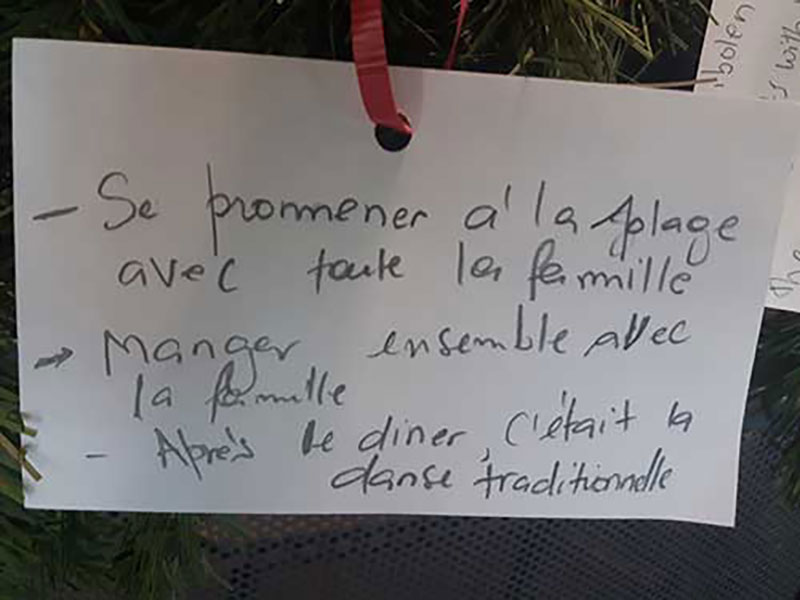 - Se promener à la plage
avec toute la famille
→ Manger ensemble avec
la famille
- Après le diner, c'était la
danse traditionnelle
bolen
s with
The